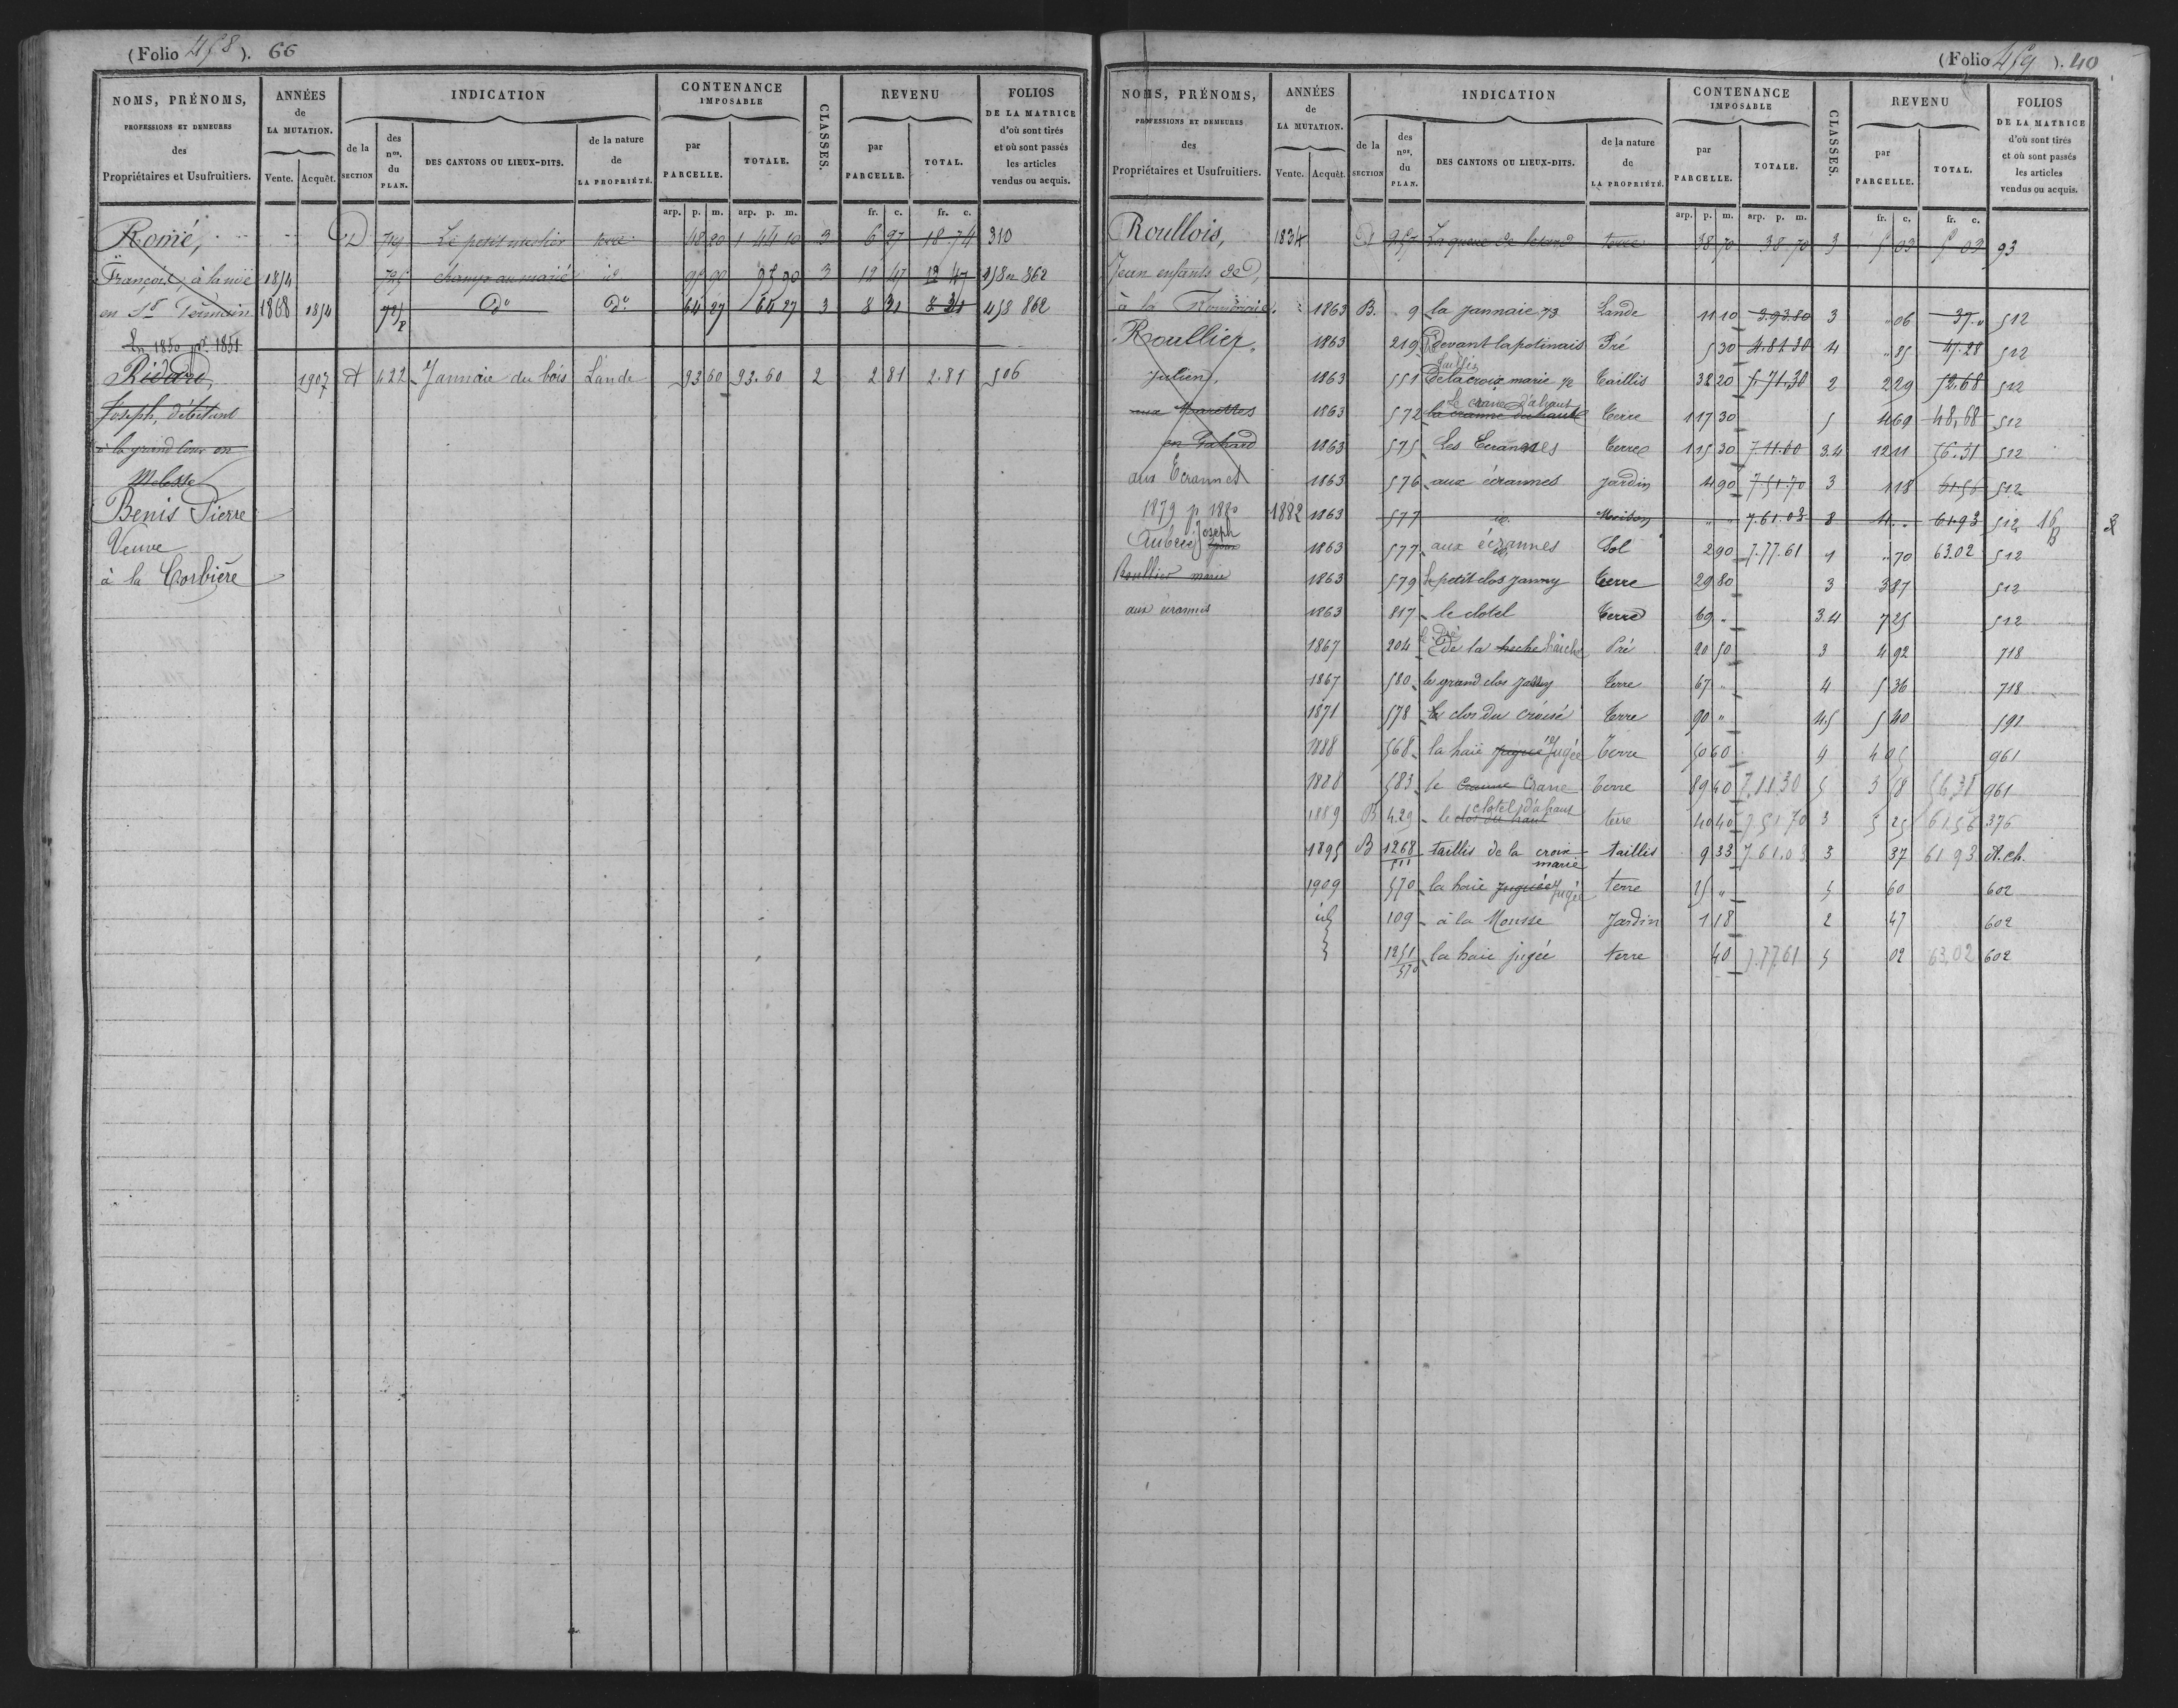 (Folio 458). 66
NOMS, PRÉNOMS, PROFESSIONS ET DEMEURES des Propriétaires et Usufruitiers.
ANNÉES de LA MUTATION. Vente. Acquêt.
INDICATION
de la SECTION
des nos. du PLAN.
DES CANTONS OU LIEUX-DITS.
de la nature de LA PROPRIÉTÉ.
CONTENANCE IMPOSABLE
par PARCELLE. TOTALE.
CLASSES.
REVENU
par PARCELLE. TOTAL.
FOLIOS DE LA MATRICE d'où sont tirés et où sont passés les articles vendus ou acquis.
arp. p. m. arp. p. m. fr. c. fr. c.
Romé, D 48 20 1 44 10 3 6 27 18 74 310
François, à la 1854 725 champ au marié id 95 90 95 90 3 12 47 12 47 458 862
en St Germain 1868 1854 Do Do 64 27 64 27 3 8 31 8 31 458 862
En 1850 pr. 1851
Ridard, 1907 A 422 Jannaie du bois Lande 93 60 93.60 2 2 81 2.81 506
Joseph, débitant
à la grand cour en
Melesse
Benis Pierre
Veuve
à la Corbière
(Folio 459). 40
NOMS, PRÉNOMS, PROFESSIONS ET DEMEURES des Propriétaires et Usufruitiers.
ANNÉES de LA MUTATION. Vente. Acquêt.
INDICATION
de la SECTION
des nos. du PLAN.
DES CANTONS OU LIEUX-DITS.
de la nature de LA PROPRIÉTÉ.
CONTENANCE IMPOSABLE
par PARCELLE. TOTALE.
CLASSES.
REVENU
par PARCELLE. TOTAL.
FOLIOS DE LA MATRICE d'où sont tirés et où sont passés les articles vendus ou acquis.
arp. p. m. arp. p. m. fr. c. fr. c.
Roullois, 1834 terre 38 70 38 70 3 5 03 5 03 93
Jean enfants de
à la 1863 B. 9 la jannaie 73 Lande 11 10 3.93.80 3 " 06 37 " 512
Roullier, 1863 219 devant la potinais Pré 5 30 4 " 85 512
Julien, 1863 551 Taillis de la croix marie Taillis 32 20 5.71.30 2 2 29 52.68 512
aux 1863 572 la cranne du haut Le crane d'ahaut Terre 1 17 30 5 4 69 48,68 512
en Gahard 1863 575 Les Ecrannes Terre 1 15 30 7.11.00 3.4 12 11 56.31 512
aux Ecrannes 1863 576 aux écrannes Jardin 4 90 7.51.70 3 1 18 61.56 512
1879 p 1880 1882 1863 577 id. Maison " " 7.61.03 8 4 " 61.93 512
Aubrée Joseph 1863 577 aux écrannes Sol 2 90 7.77.61 1 " 70 63.02 512
Roullier marie 1863 579 le petit clos janny Terre 29 80 3 3 87 512
aux écrannes 1863 817 le clotel Terre 69 " 3.4 7 25 512
1867 204 le Pré de la Pré 20 50 3 4 92 718
1867 580 le grand clos janny Terre 67 " 4 5 36 718
1871 578 le clos du croisé Terre 90 " 4.5 5 40 591
1888 568 la haie Jugée Terre 50 60 4 4 05 961
1888 583 le Cranne Crane Terre 89 40 7.11.30 5 3 58 56,31 961
1889 B 429 le clos du haut clotel d'ahaut terre 40 40 7.51.70 3 5 25 61.56 376
1895 B 1268/551 taillis de la croix marie taillis 9 33 7.61.03 3 37 61 93 A.ch.
1909 570 la haie Jugée terre 15 " 5 60 602
id 109 à la Mousse Jardin 1 18 2 47 602
1251/570 la haie jugée terre 40 7.77.61 5 02 63,02 602